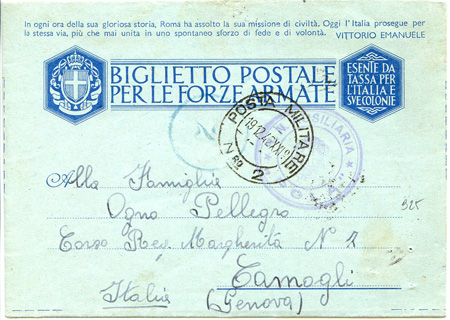 In ogni ora della sua gloriosa storia, Roma ha assolto la sua missione di civiltà. Oggi l'Italia prosegue per
la stessa via, più che mai unita in uno spontaneo sforzo di fede e di volontà. VITTORIO EMANUELE
BIGLIETTO POSTALE
PER LE FORZE ARMATE
ESENTE DA
TASSA PER
L'ITALIA E
SVE COLONIE
POSTA MILITARE
19.12.42 XXI
N RO 2
Alla Famiglia
Ogno Pellegro
Corso Reg. Margherita N 2
Camogli
Italia (Genova)